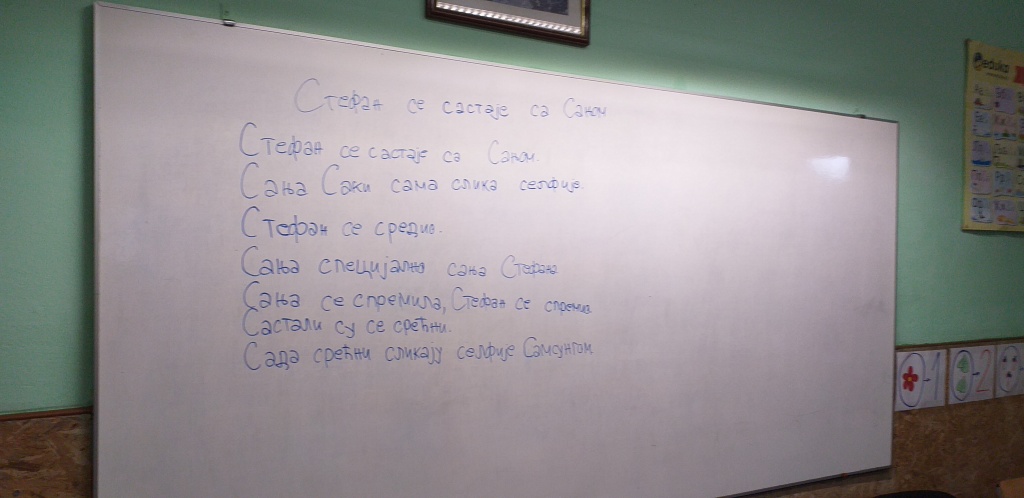 Стефан се састаје са Сањом
Стефан се састаје са Сањом.
Сања Саки сама слика селфије.
Стефан се средио.
Сања специјално сања Стефана
Сања се спремила, Стефан се спремио.
Састали су се срећни.
Сада срећни сликају селфије Самсунгом
eduka
-1
-2